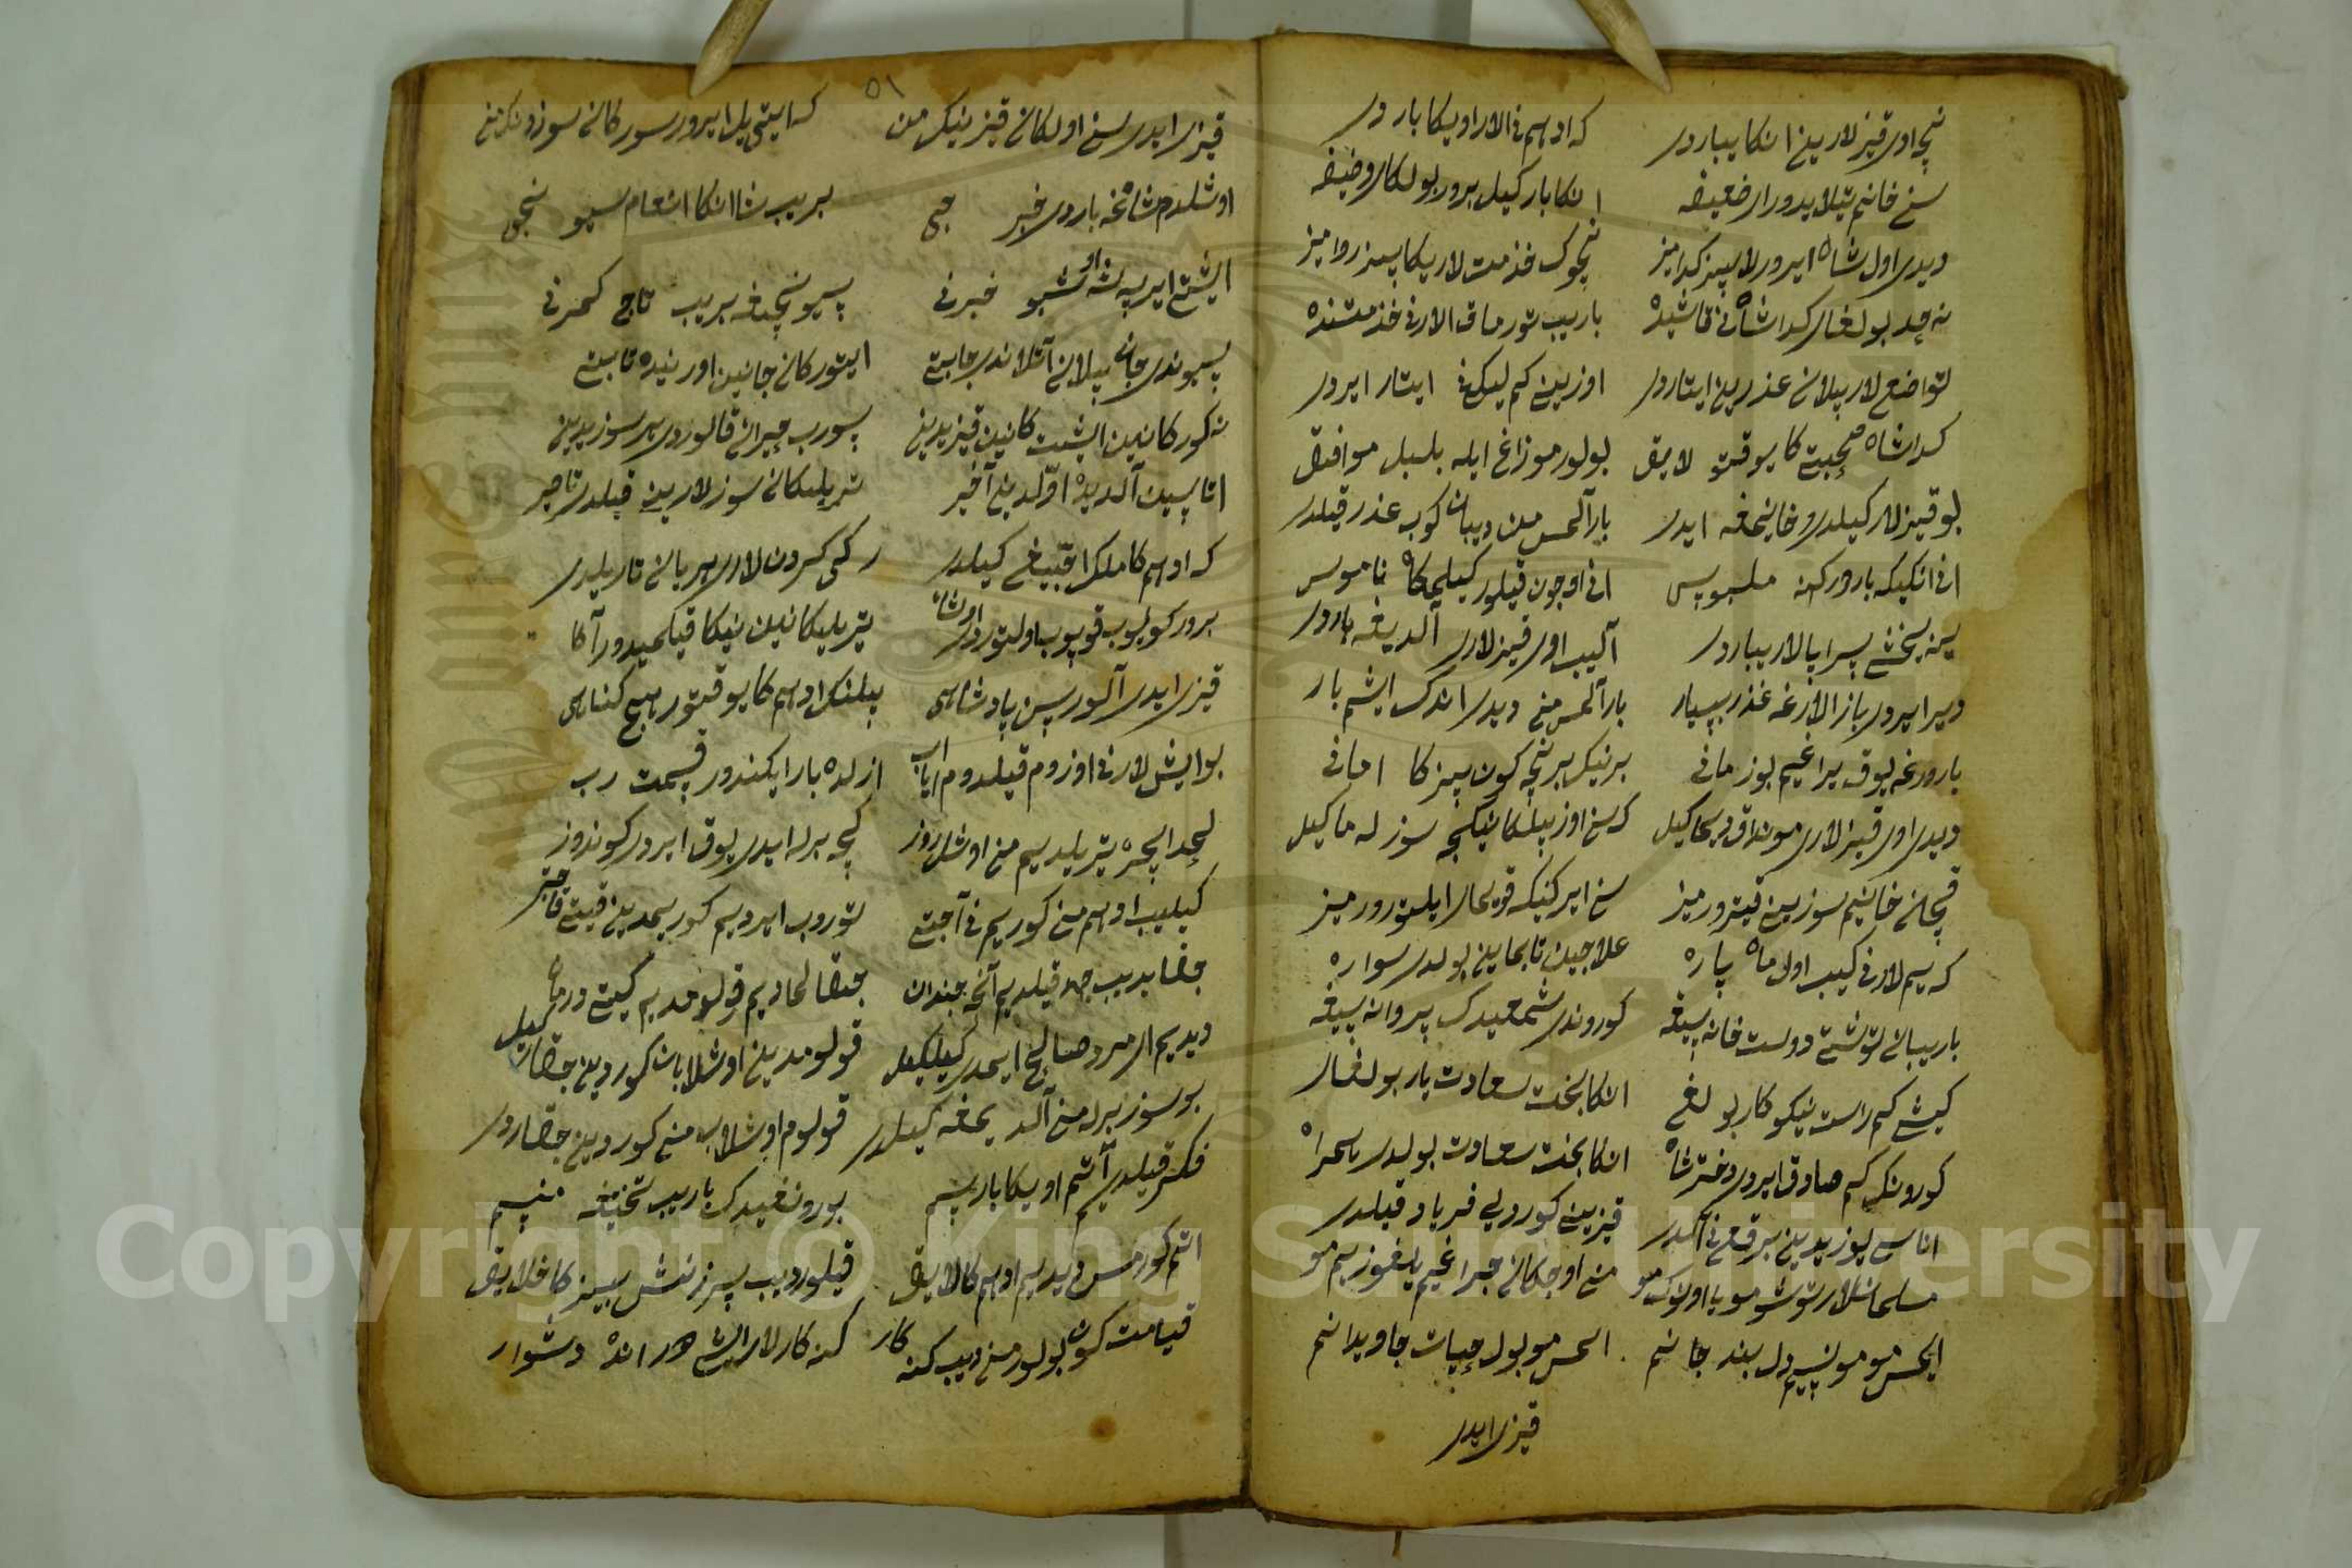 نچه اول قیزلارینی انکا یبارور که ادهم نی الار اویکا بارور
سنی خانیم تیلایدور ای ضعیفه انکا بارکیل بیرور بولکای وضیفه
دیدی اول شاه ایرورلار بیز کدامیز نچوک خذمت لاریکا بیز روامیز
نه حد بولغای کدا شاه نی قاشیده باریب تورماق الارنی خذمتنده
تواضع لار بیلان عذرین ایتارور اوزین کم لیک نی ایتار ایرور
کدا شاه صحبتی کا یوقتو لایق بولور مو زاغ ایله بلبل موافق
بو قیزلار کیلدی و خانیمغه ایدی بارالمس من دیبان کوب عذر قیلدی
انی انکیکه بارور کنه ملبوس انی اوچون قیلور کیلمکا ناموس
ینه یخشی سراپالار یبارور آلیب اول قیزلار آلدیغه بارور
دیر ایرور باز الارغه عذر بسیار بارالمس من دیدی اندک ایشم بار
بارورغه یوق یراغیم بو زمانی برنیک بر نچه کون بیزکا امانی
دیدی اول قیزلار مونداق دیماکیل که سن اوز بیلکانینکچه سوزلماکیل
قچان خانیم سوزین قیترورمیز سنی ایرکنیکه قویمای ایلتورورمیز
که یم لارنی کییب اول ماه پاره علاجین تابماین بولدی سواره
باریبان توشتی دولت خانه سیغه کوروندی شمعیدک پروانه سیغه
کیشی کم راست نیکوکار بولغی انکا بخت سعادت یار بولغای
کورونک کم صادق ایرور دختر شاه انکا بخت سعادت بولدی همراه
اناسی یوزیدین برقع نی آلدی قیزین کوردی فریاد قیلدی
مسلمانلار توشومو یا اونک مو منی اوچکان چراغیم یالغوزیم مو
ایمس مو مونیسیم دل بند جانیم ایمس مو بول حیات جاویدانیم
قیزی ایدی
٥١
قیزی ایدی سنی اولکان قیزینک من که ایتی ییل ایرور سورکان سوزونک من
اوشلدم شاغه باردی خبرچی بریب شا انکا انعام سیونچی
ایشتی ایرسه شه اوشبو خبرنی سیونچیغه بریب تاج کمرنی
سیوندی جان بیلان آتلاندی چابتی ایتورکان جانین اوینده تابتی
نه کورکانین ایشت کانین قیزیدین سورب حیران قالوردی هر سوزیدین
اتاسین آلدیده اولدین آخر تریلکان سوزلارین قیلدی تاجر
که ادهم کا ملک اقبیغی کیلدی رکی کردن لاری هریان تاریلدی
برور کویوب قویوب اولتوردی اوشا تریلکانین نیکا قیلمیدور آکا
قیزی ایدی آلورسن پادشاهی بیلنک ادهم کا یوقتور هیچ کناهی
بو ایش لارنی اوزوم قیلدوم ایا اب ازلده بار ایکندور قسمت رب
لحد ایچره تریلدیم من اوشل روز کچه برله ایدی یوق ایرور کوندوز
کیلیب ادهم منی کوریم نی آچتی توروب ایردیم کوریمدین قیتی قاچتی
جفا بریب جهد قیلدیم آنچه چندان چقالمادیم قولومدیم کیتی درمان
دیدیم ای مرد صالح ایمدی کیلکیل قولومدین اوشلابان کوردین چقارکیل
بو سوز برله من آلدیمغه کیلدی قولوم اوشلاب منی کوردین چقاردی
فکر قیلدیم آتم اویکا بارسم بورونغیدک باریب تختیغه مینسم
اتم کورمس دیدیم ادهم کا لایق قیلور دیب سرزنش بیزکا خلایق
قیامت کون بولور من دیب کنه کار کنه کارلار ایشی هر انده دشوار